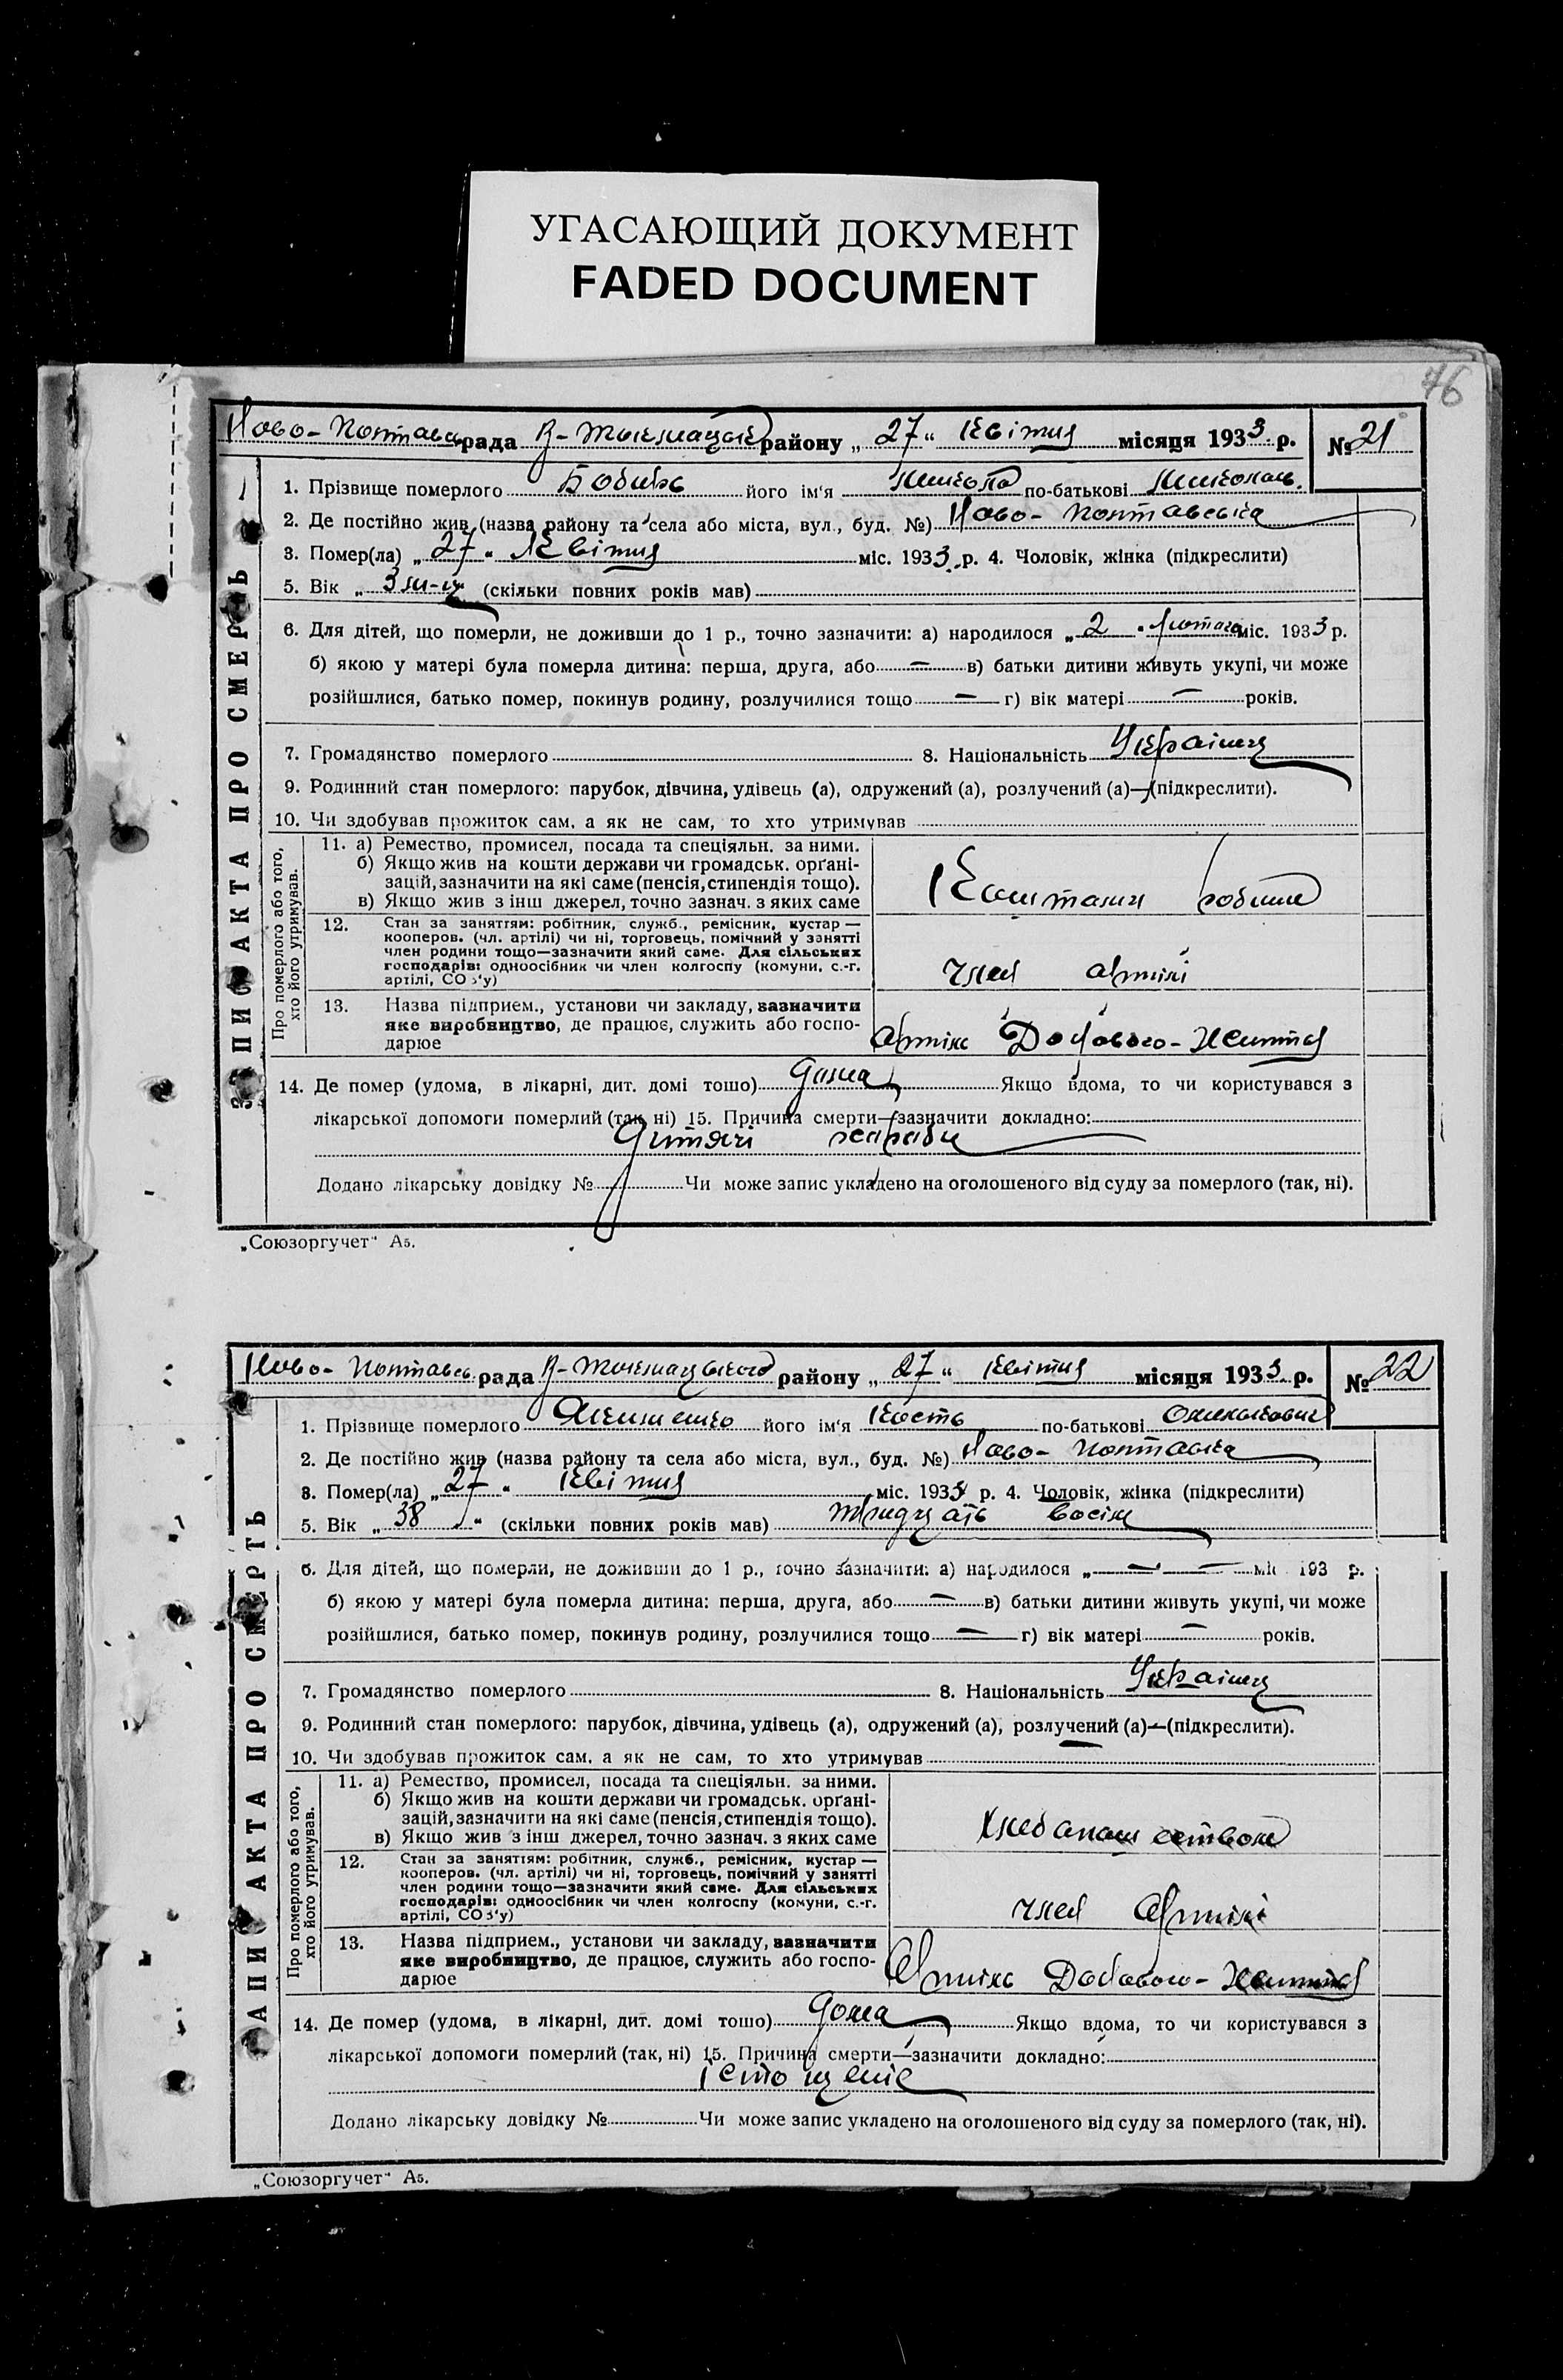 УГАСАЮЩИЙ ДОКУМЕНТ
FADED DOCUMENT
76
Ново-Полтавсь рада В-Токмацьк району „27“ Квітня місяця 1933 р. № 21
1. Прізвище померлого Бобирь його ім'я Микола по-батькові Миколаь.
2. Де постійно жив (назва району та села або міста, вул., буд. №) Ново-Полтавська
3. Помер(ла) „27“ Квітня міс. 1933 р. 4. Чоловік, жінка (підкреслити)
5. Вік „3 м-ця (скільки повних років мав)
6. Для дітей, що померли, не доживши до 1 р., точно зазначити: а) народилося „2“ Лютого міс. 1933 р.
б) якою у матері була померла дитина: перша, друга, або — в) батьки дитини живуть укупі, чи може
розійшлися, батько помер, покинув родину, розлучилися тощо — г) вік матері — років.
7. Громадянство померлого 8. Національність Українц
9. Родинний стан померлого: парубок, дівчина, удівець (а), одружений (а), розлучений (а)—(підкреслити).
10. Чи здобував прожиток сам, а як не сам, то хто утримував
Про померлого або того,
хто його утримував.
11. а) Ремество, промисел, посада та спеціяльн. за ними.
б) Якщо жив на кошти держави чи громадськ. орґані-
зацій, зазначити на які саме (пенсія, стипендія тощо).
в) Якщо жив з інш джерел, точно зазнач. з яких саме
12. Стан за заняттям: робітник, служб., ремісник, кустар —
кооперов. (чл. артілі) чи ні, торговець, помічний у занятті
член родини тощо—зазначити який саме. Для сільських
господарів: одноосібник чи член колгоспу (комуни, с.-г.
артілі, СОЗ'у)
член артілі
13. Назва підприєм., установи чи закладу, зазначити
яке виробництво, де працює, служить або госпо-
дарює
Артіль Дослового-Життя
14. Де помер (удома, в лікарні, дит. домі тощо) Дома Якщо вдома, то чи користувався з
лікарської допомоги померлий (так, ні) 15. Причина смерти—зазначити докладно:
Дитячі
Додано лікарську довідку № Чи може запис укладено на оголошеного від суду за померлого (так, ні).
ЗАПИС АКТА ПРО СМЕРТЬ
„Союзоргучет“ А5.
Ново-Полтавсь рада В-Токмацького району „27“ Квітня місяця 1933 р. № 22
1. Прізвище померлого його ім'я Кость по-батькові Омелькович
2. Де постійно жив (назва району та села або міста, вул., буд. №) Ново-Полтавка
3. Помер(ла) „27“ Квітня міс. 1933 р. 4. Чоловік, жінка (підкреслити)
5. Вік „38“ (скільки повних років мав) тридцать восім
6. Для дітей, що померли, не доживши до 1 р., точно зазначити: а) народилося „— — міс 193 р.
б) якою у матері була померла дитина: перша, друга, або — в) батьки дитини живуть укупі, чи може
розійшлися, батько помер, покинув родину, розлучилися тощо — г) вік матері — років.
7. Громадянство померлого 8. Національність Українц
9. Родинний стан померлого: парубок, дівчина, удівець (а), одружений (а), розлучений (а)—(підкреслити).
10. Чи здобував прожиток сам, а як не сам, то хто утримував
Про померлого або того,
хто його утримував.
11. а) Ремество, промисел, посада та спеціяльн. за ними.
б) Якщо жив на кошти держави чи громадськ. орґані-
зацій, зазначити на які саме (пенсія, стипендія тощо).
в) Якщо жив з інш джерел, точно зазнач. з яких саме
хлебапашеством
12. Стан за заняттям: робітник, служб., ремісник, кустар —
кооперов. (чл. артілі) чи ні, торговець, помічний у занятті
член родини тощо—зазначити який саме. Для сільських
господарів: одноосібник чи член колгоспу (комуни, с.-г.
артілі, СОЗ'у)
член Артілі
13. Назва підприєм., установи чи закладу, зазначити
яке виробництво, де працює, служить або госпо-
дарює
Артіль Дослового-Життя
14. Де помер (удома, в лікарні, дит. домі тощо) Дома Якщо вдома, то чи користувався з
лікарської допомоги померлий (так, ні) 15. Причина смерти—зазначити докладно:
істощеніє
Додано лікарську довідку № Чи може запис укладено на оголошеного від суду за померлого (так, ні).
ЗАПИС АКТА ПРО СМЕРТЬ
„Союзоргучет“ А5.